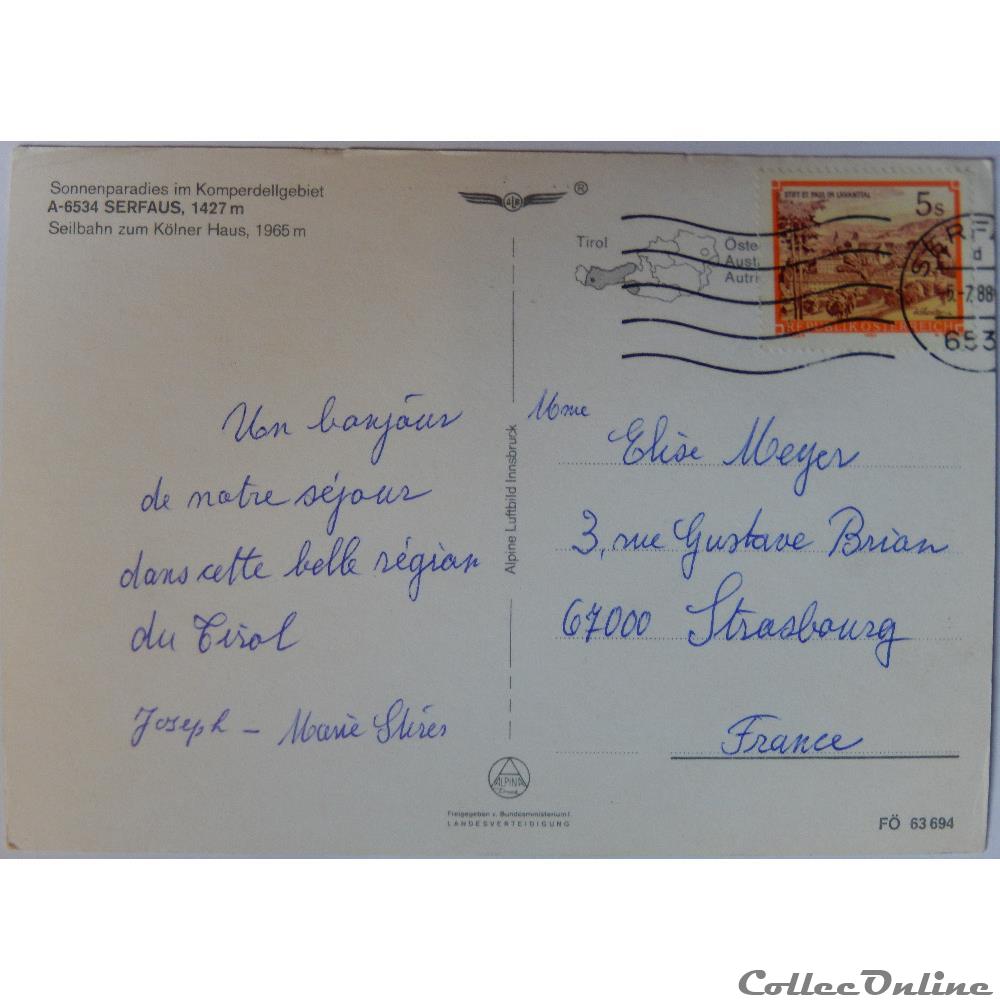 Sonnenparadies im Komperdellgebiet
A-6534 SERFAUS, 1427 m
Seilbahn zum Kölner Haus, 1965 m
ALB
®
Tirol
Öste
Aust
Autri
STIFT ST. PAUL IM LAVANTTAL
5s
REPUBLIK ÖSTERREICH
SERF
5.-7.88
653
Un bonjour
de notre séjour
dans cette belle région
du Tirol
Joseph - Marie
Alpine Luftbild Innsbruck
Mme
Elise Meyer
3, rue Gustave Brion
67000 Strasbourg
France
ALPINA
Freigegeben v. Bundesministerium f.
LANDESVERTEIDIGUNG
FÖ 63 694
CollecOnline